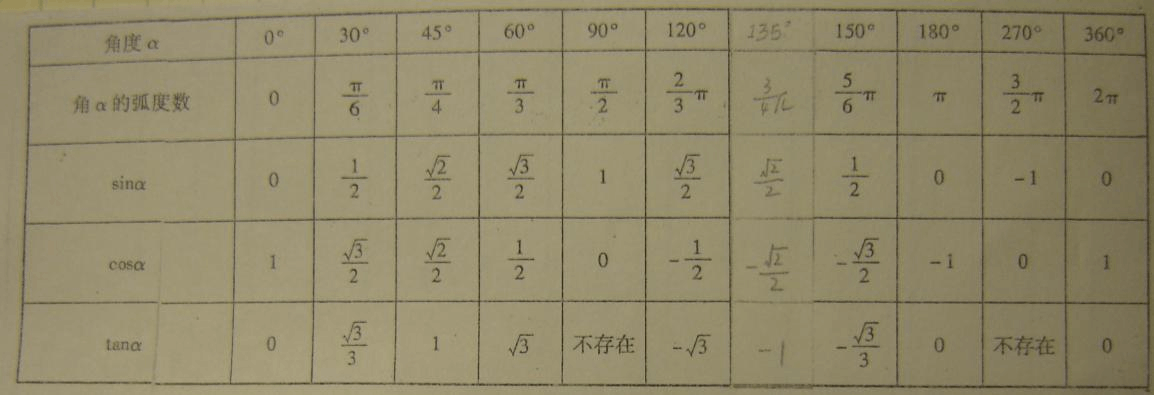 角度 α 0° 30° 45° 60° 90° 120° 135° 150° 180° 270° 360°
角 α 的弧度数 0 π/6 π/4 π/3 π/2 2/3 π 3/4 π 5/6 π π 3/2 π 2π
sinα 0 1/2 √2/2 √3/2 1 √3/2 √2/2 1/2 0 -1 0
cosα 1 √3/2 √2/2 1/2 0 -1/2 -√2/2 -√3/2 -1 0 1
tanα 0 √3/3 1 √3 不存在 -√3 -1 -√3/3 0 不存在 0